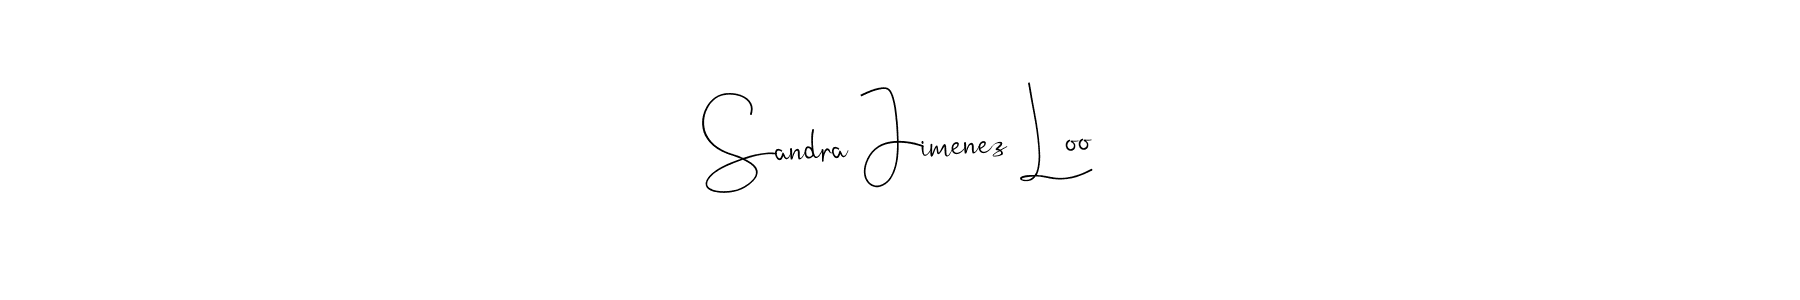 Sandra Jimenez Loo